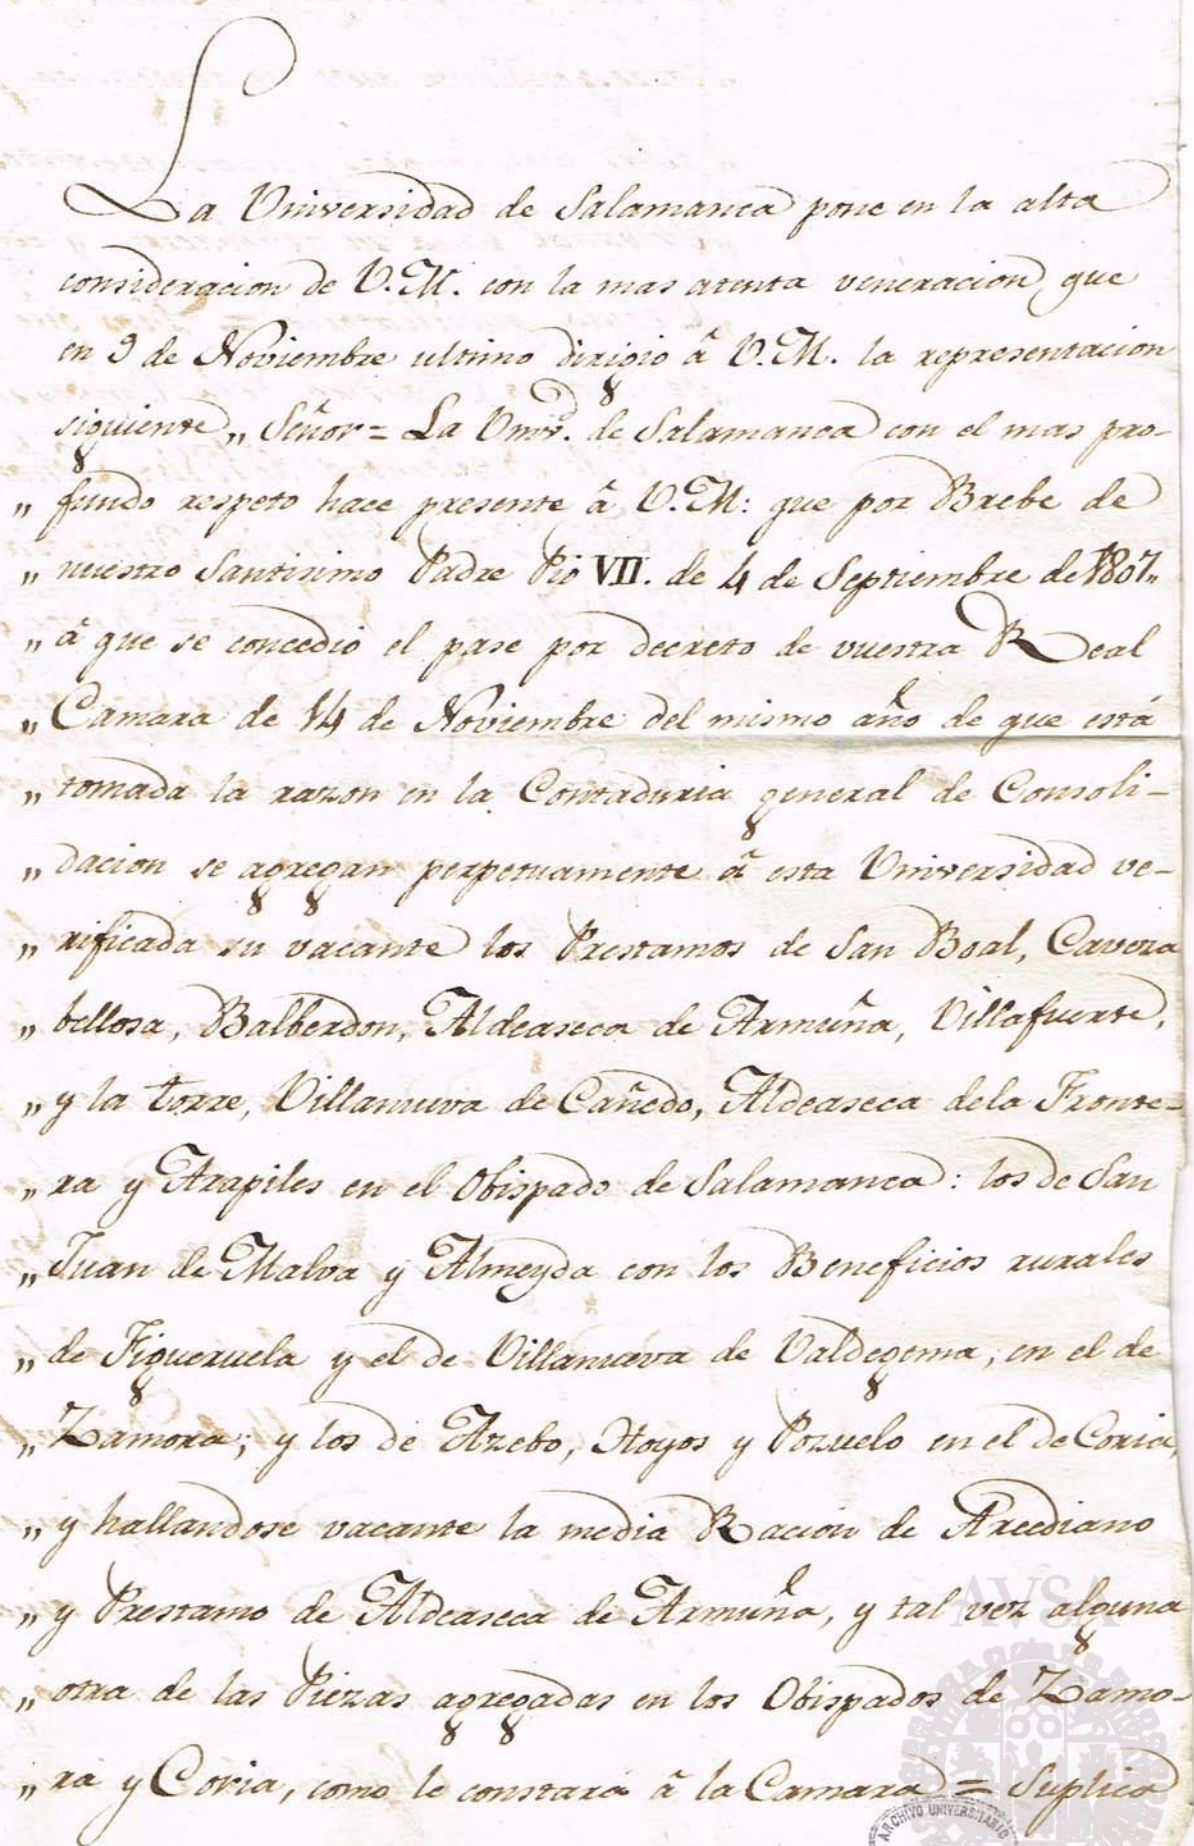 La Universidad de Salamanca pone en la alta
consideracion de V.M. con la mas atenta veneracion, que
en 9 de Noviembre ultimo dirigio â V.M. la representacion
siguiente „ Señor = La Univd. de Salamanca con el mas pro-
„ fundo respeto hace presente â V.M: que por Brebe de
„ nuestro Santisimo Padre Pio VII. de 4 de Septiembre de 1807„
„ â que se concedio el pase por decreto de vuestra Real
„ Camara de 14 de Noviembre del mismo año de que está
„ tomada la razon en la Contaduria general de Consoli-
„ dacion se agregan perpetuamente â esta Universidad ve-
„ rificada su vacante los Prestamos de San Boal, Caveza
„ bellosa, Balberdon, Aldeaseca de Armuña, Villafuerte,
„ y la torre, Villanueva de Cañedo, Aldeaseca dela Fronte-
„ ra y Arapiles en el Obispado de Salamanca: los de San
„ Juan de Malva y Almeyda con los Beneficios rurales
„ de Figueruela y el de Villanueva de Valdegema, en el de
„ Zamora; y los de Azebo, Hoyos y Pozuelo en el de Coria,
„ y hallandose vacante la media Racion de Arcediano
„ y Prestamo de Aldeaseca de Armuña, y tal vez alguna
„ otra de las Piezas agregadas en los Obispados de Zamo-
„ ra y Coria, como le constará â la Camara = Suplica
AVSA
ARCHIVO UNIVERSITARIO